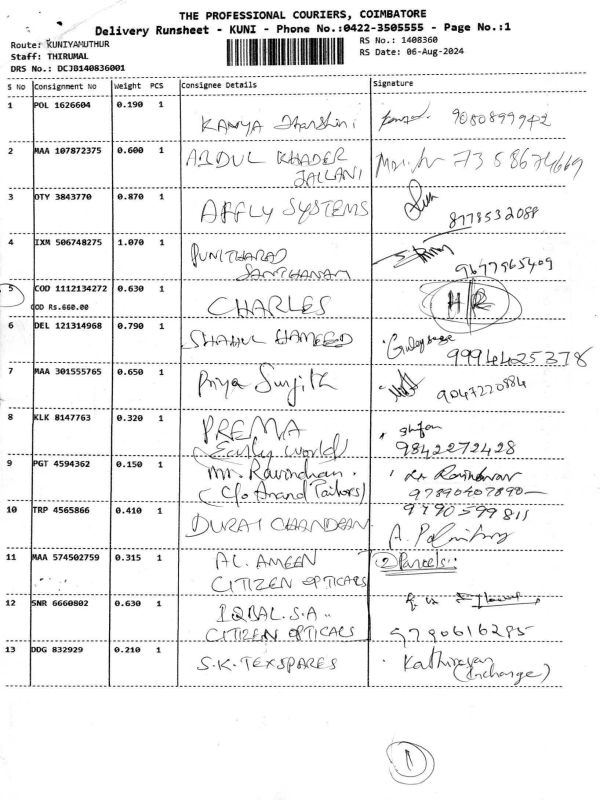 THE PROFESSIONAL COURIERS, COIMBATORE
Delivery Runsheet - KUNI - Phone No.:0422-3505555 - Page No.:1
Route: KUNIYAMUTHUR
RS No.: 1408360
Staff: THIRUMAL
RS Date: 06-Aug-2024
DRS No.: DCJB140836001
S No Consignment No Weight PCS Consignee Details Signature
1 POL 1626604 0.190 1
KANYA Dharshini 9080899942
2 MAA 107872375 0.600 1 ABDUL KHADER
JAILANI
3 OTY 3843770 0.870 1
AFFLY SYSTEMS
8778532088
4 IXM 506748275 1.070 1
PUNITHARAJ
SANTHANAM 9677965409
5 COD 1112134272 0.630 1
COD Rs.660.00 CHARLES HR
6 DEL 121314968 0.790 1
SHAHUL HAMEED 9994425378
7 MAA 301555765 0.650 1
Priya Surjith 9047220884
8 KLK 8147763 0.320 1 PREMA
(Early World) 9842272428
9 PGT 4594362 0.150 1 Mr. Ravindran.
(C/o Anand Tailors) 97890407890
10 TRP 4565866 0.410 1 9790599811
DURAI CHANDRAN
11 MAA 574502759 0.315 1 AL. AMEEN 2 Parcels..
CITIZEN OPTICALS
12 SNR 6660802 0.630 1 IQBAL.S.A..
CITIZEN OPTICALS 9790616285
13 DDG 832929 0.210 1 S.K. TEXSPARES Kathiresan
(Incharge)
1